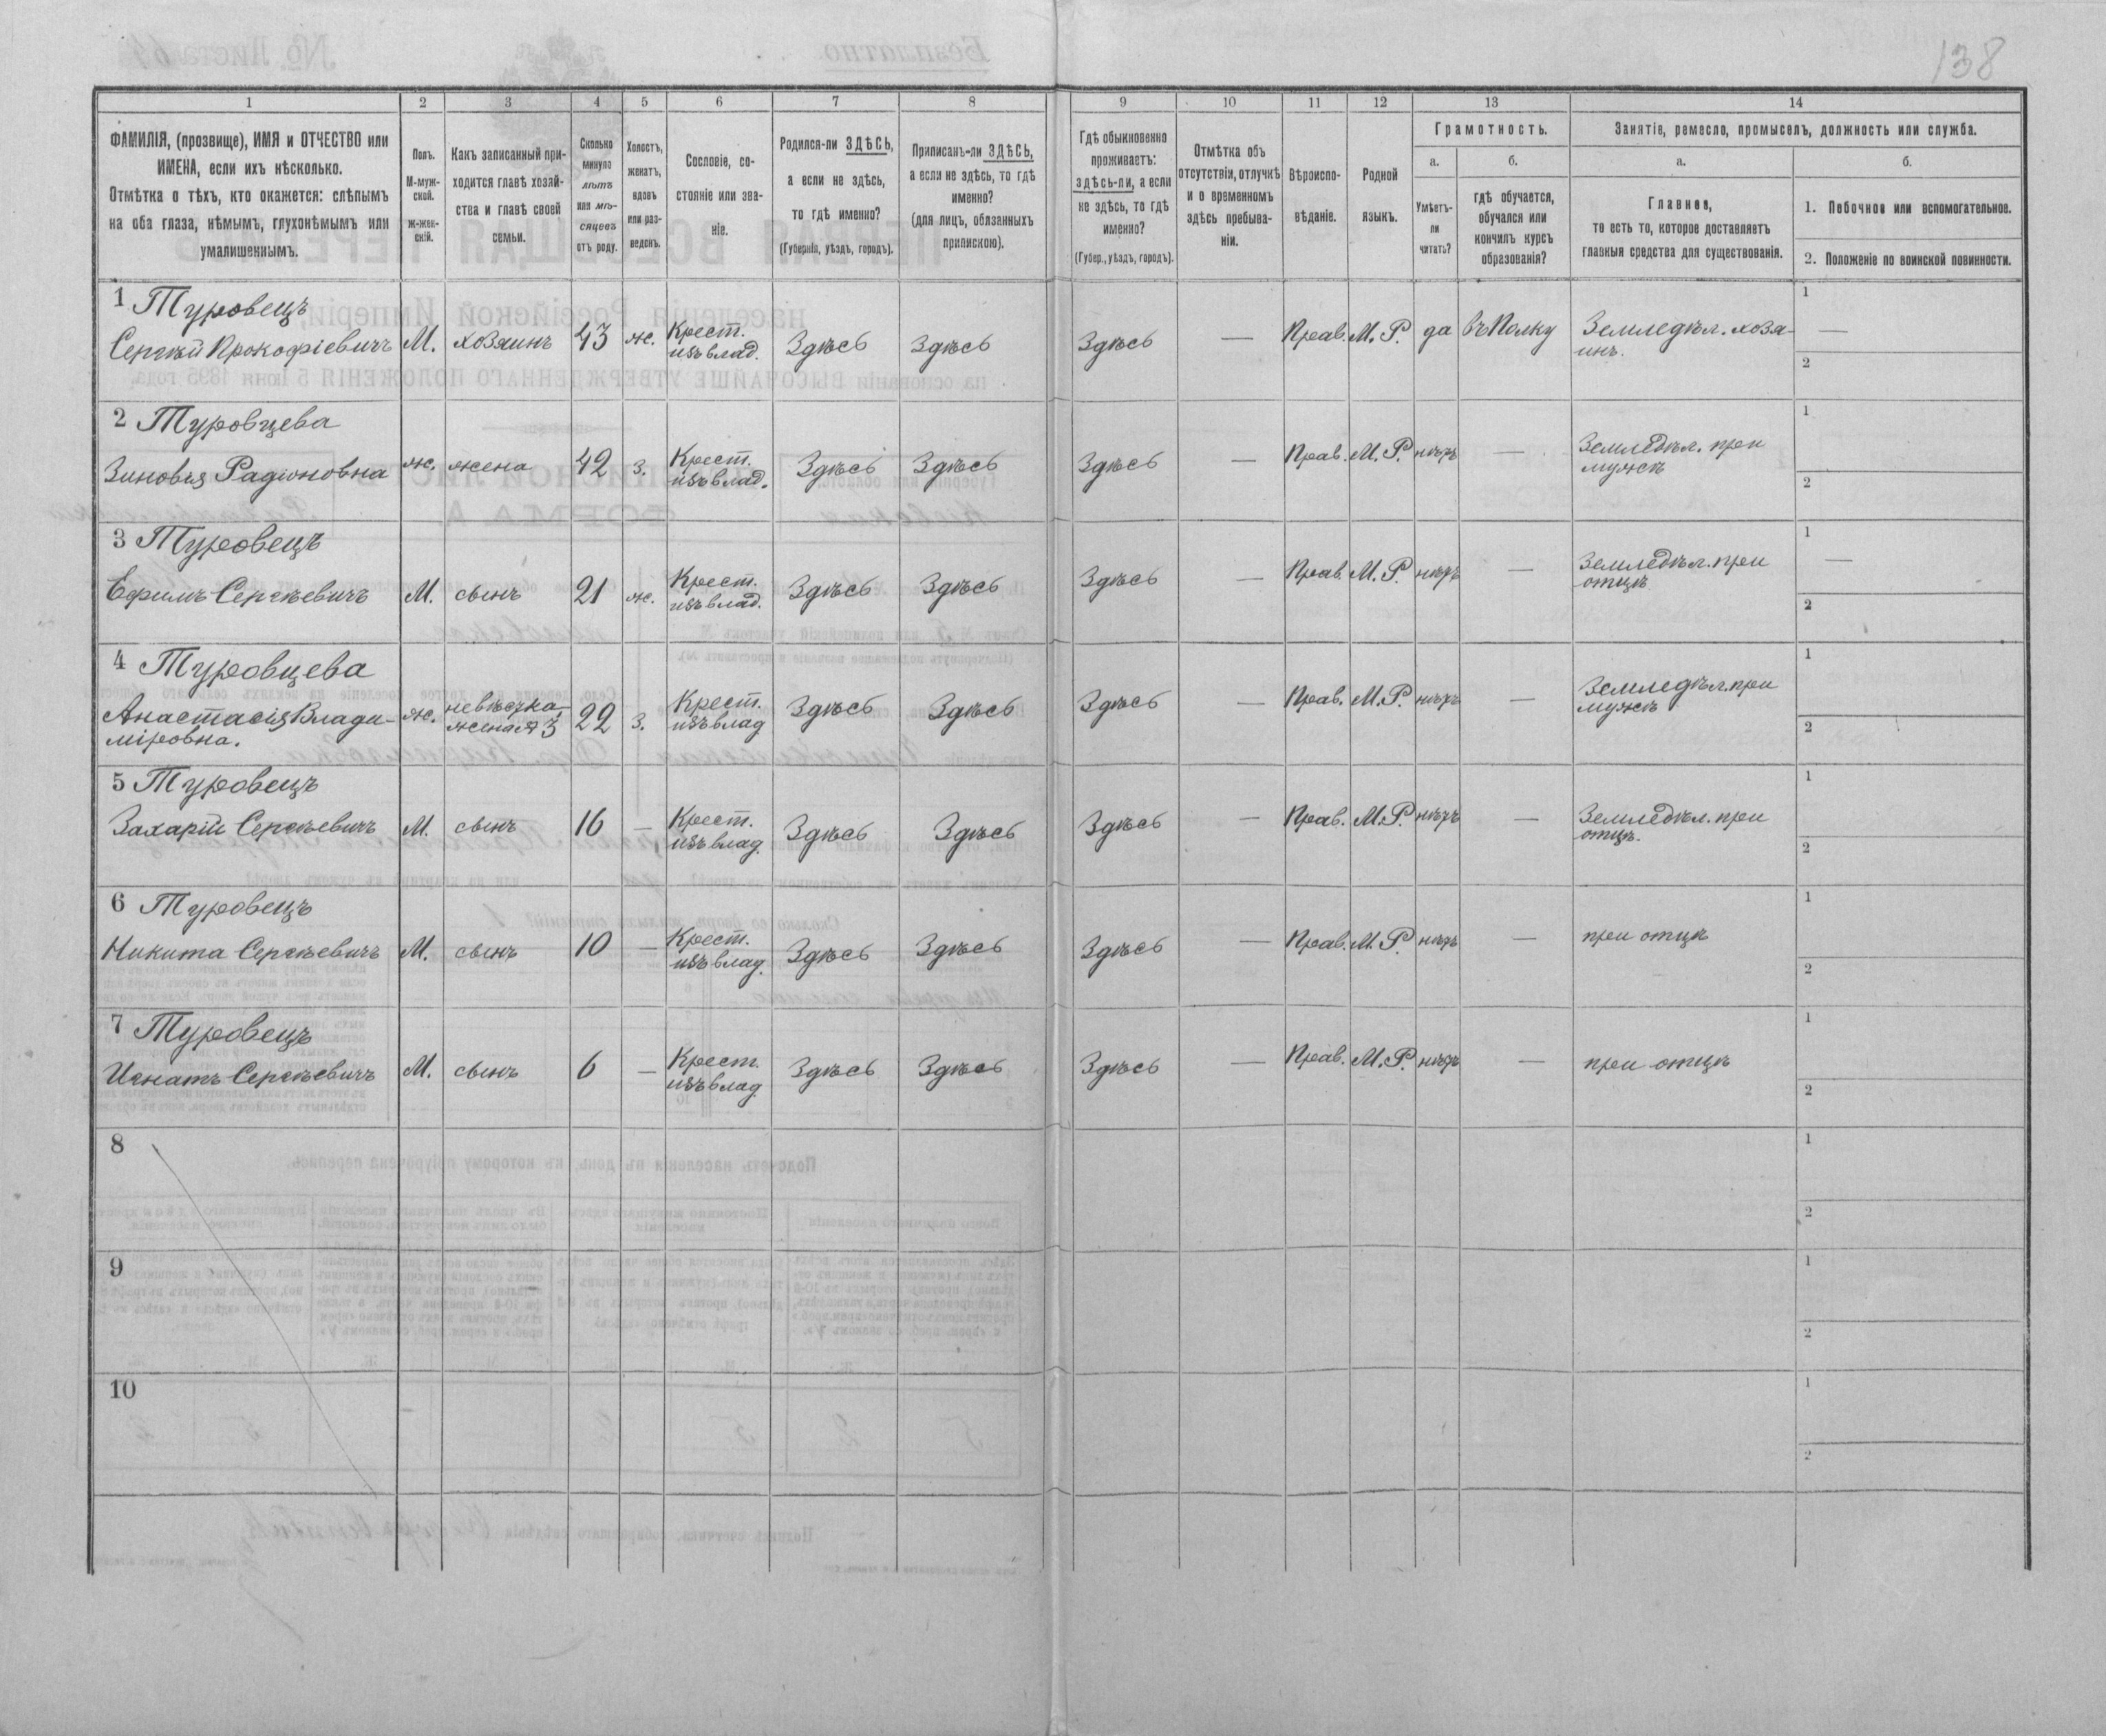 138
1 2 3 4 5 6 7 8 9 10 11 12 13 14
ФАМИЛІЯ, (прозвище), ИМЯ и ОТЧЕСТВО или
ИМЕНА, если ихъ нѣсколько.
Отмѣтка о тѣхъ, кто окажется: слѣпымъ
на оба глаза, нѣмымъ, глухонѣмымъ или
умалишеннымъ.
Полъ.
М-муж-
ской.
ж-жен-
скій.
Какъ записанный при-
ходится главѣ хозяй-
ства и главѣ своей
семьи.
Сколько
минуло
лѣтъ
или мѣ-
сяцевъ
отъ роду.
Холостъ,
женатъ,
вдовъ
или раз-
веденъ.
Сословіе, со-
стояніе или зва-
ніе.
Родился-ли ЗДѢСЬ,
а если не здѣсь,
то гдѣ именно?
(Губернія, уѣздъ, городъ).
Приписанъ-ли ЗДѢСЬ,
а если не здѣсь, то гдѣ
именно?
(для лицъ, обязанныхъ
припискою).
Гдѣ обыкновенно
проживаетъ:
здѣсь-ли, а если
не здѣсь, то гдѣ
именно?
(Губер., уѣздъ, городъ).
Отмѣтка объ
отсутствіи, отлучкѣ
и о временномъ
здѣсь пребыва-
ніи.
Вѣроиспо-
вѣданіе.
Родной
языкъ.
Грамотность.
а.
Умѣетъ-
ли
читать?
б.
гдѣ обучается,
обучался или
кончилъ курсъ
образованія?
Занятіе, ремесло, промыселъ, должность или служба.
а.
Главное,
то есть то, которое доставляетъ
главныя средства для существованія.
б.
1. Побочное или вспомогательное.
2. Положеніе по воинской повинности.
1 Туровецъ
Сергѣй Прокофіевичъ М. хозяинъ 43 ж. Крест. Здѣсь Здѣсь Здѣсь — Прав. М.Р. да въ Полку Земледѣл. хозя- 1 —
изъ влад. инъ. 2
2 Туровцева
Зиновія Радіоновна ж. жена 42 з. Крест. Здѣсь Здѣсь Здѣсь — Прав. М.Р. нѣтъ — Земледѣл. при 1
изъ влад. мужѣ 2
3 Туровецъ
Ефимъ Сергѣевичъ М. сынъ 21 ж. Крест. Здѣсь Здѣсь Здѣсь — Прав. М.Р. нѣтъ — Земледѣл. при 1 —
изъ влад. отцѣ 2
4 Туровцева
Анастасія Влади- ж. невѣстка 22 з. Крест. Здѣсь Здѣсь Здѣсь — Прав. М.Р. нѣтъ — Земледѣл. при 1
міровна. жена № 3 изъ влад мужѣ 2
5 Туровецъ
Захарій Сергѣевичъ М. сынъ 16 — Крест. Здѣсь Здѣсь Здѣсь — Прав. М.Р. нѣтъ — Земледѣл. при 1
изъ влад. отцѣ. 2
6 Туровецъ
Никита Сергѣевичъ М. сынъ 10 — Крест. Здѣсь Здѣсь Здѣсь — Прав. М.Р. нѣтъ — при отцѣ 1
изъ влад. 2
7 Туровецъ
Игнатъ Сергѣевичъ М. сынъ 6 — Крест. Здѣсь Здѣсь Здѣсь — Прав. М.Р. нѣтъ — при отцѣ 1
изъ влад. 2
8 1
2
9 1
2
10 1
2